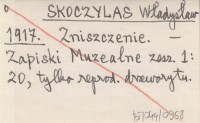 SKOCZYLAS Władysław
1917. Zniszczenie. —
Zapiski Muzealne zesz. 1:
20, tylko reprod. drzeworytu.